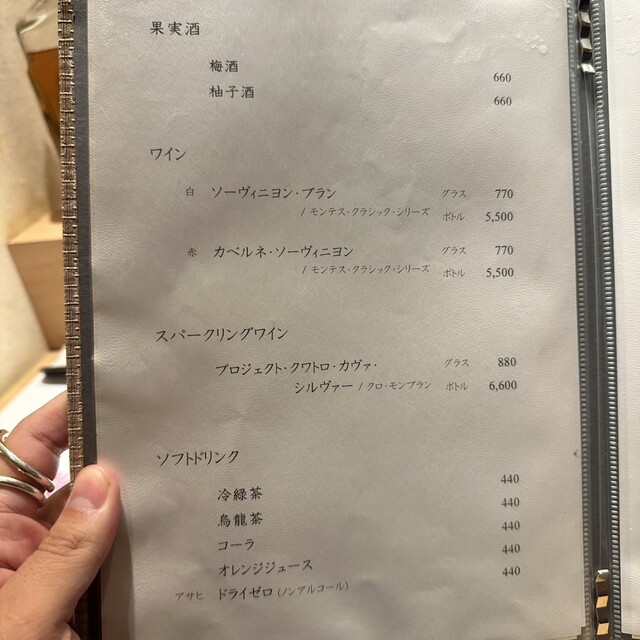 果実酒
梅酒 660
柚子酒 660
ワイン
白 ソーヴィニヨン・ブラン グラス 770
/ モンテス・クラシック・シリーズ ボトル 5,500
赤 カベルネ・ソーヴィニヨン グラス 770
/ モンテス・クラシック・シリーズ ボトル 5,500
スパークリングワイン
プロジェクト・クワトロ・カヴァ・ グラス 880
シルヴァー / クロ・モンブラン ボトル 6,600
ソフトドリンク
冷緑茶 440
烏龍茶 440
コーラ 440
オレンジジュース 440
アサヒ ドライゼロ (ノンアルコール) 440